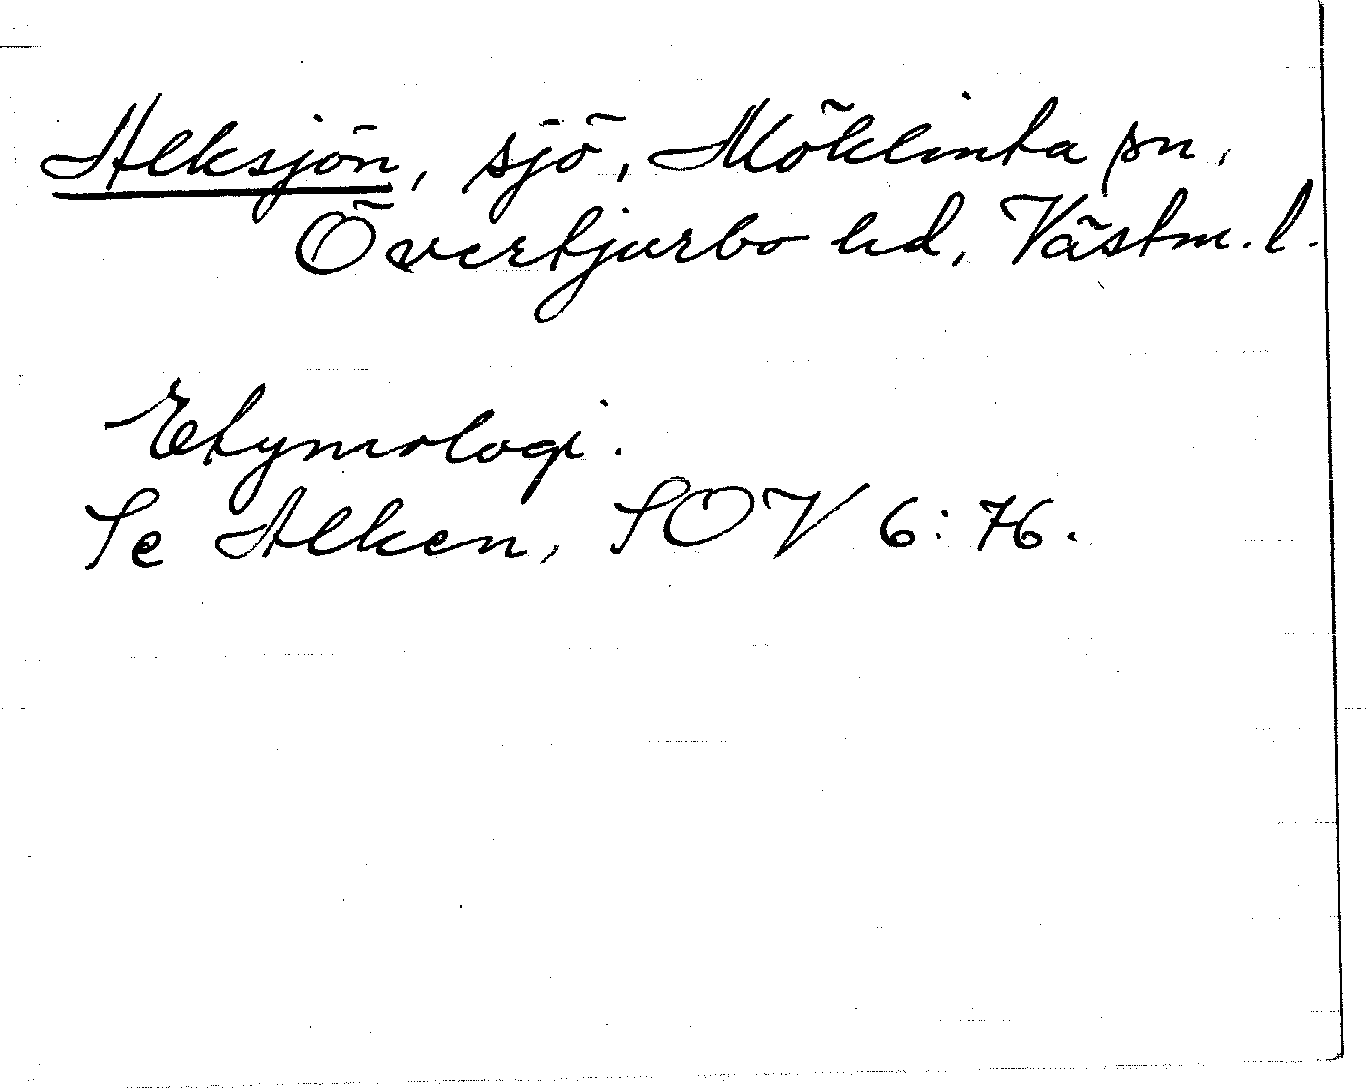 Alksjön, sjö, Möklinta sn,
Övertjurbo hd, Västm. l.
Etymologi.
Se Alken, SOV 6:76.